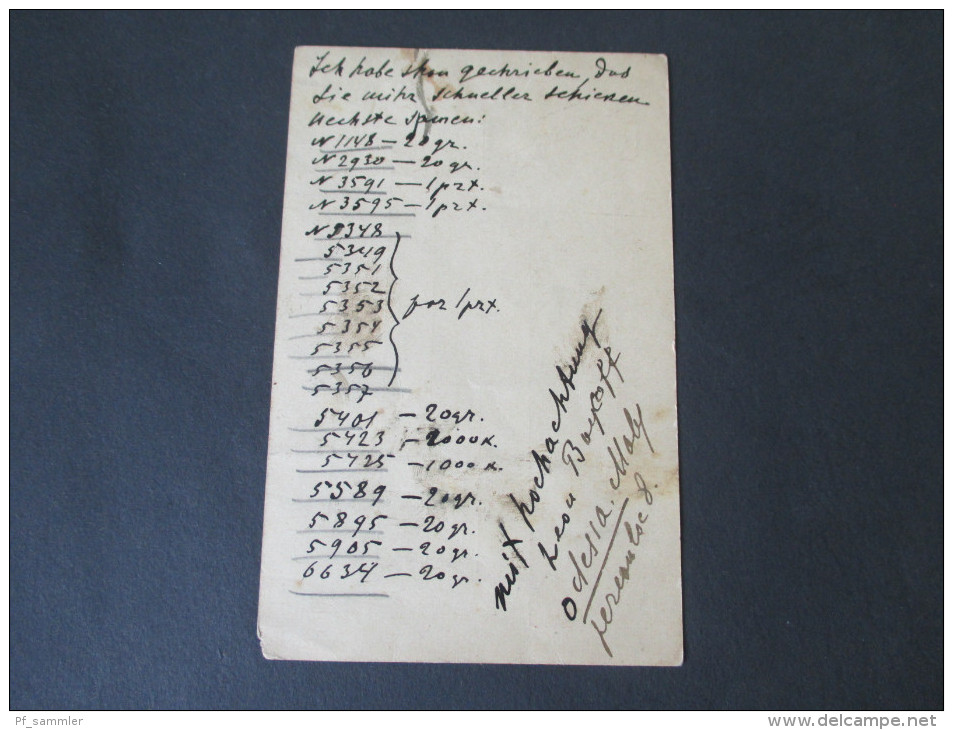 Ich habe shon geschrieben, das
Sie mihr schneller schicken
Nechste Samen:
N 1148 — 20 gr.
N 2930 — 20 gr.
N 3591 — 1 prt.
N 3595 — 1 prt.
N 5348
5349
5351
5352
5353 por 1 prt.
5354
5355
5356
5357
5401 — 20 gr.
5423 — 2000 K.
5425 — 1000 K.
5589 — 20 gr.
5895 — 20 gr.
5905 — 20 gr.
6634 — 20 gr.
mit hochachtung
Leon
Odessa.
8.
Pf_sammler
www.delcampe.net